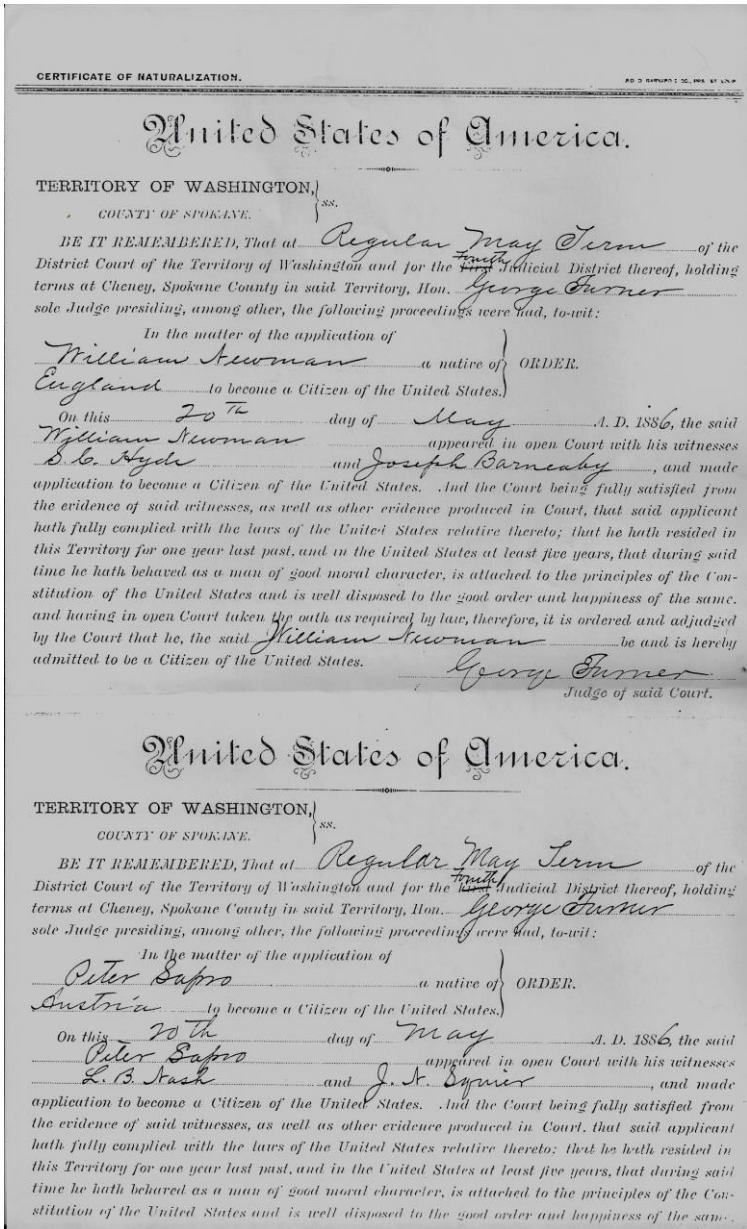 CERTIFICATE OF NATURALIZATION.
United States of America.
TERRITORY OF WASHINGTON,
ss.
COUNTY OF SPOKANE.
BE IT REMEMBERED, That at Regular May Term of the
Fourth
District Court of the Territory of Washington and for the First Judicial District thereof, holding
terms at Cheney, Spokane County in said Territory, Hon. George Turner
sole Judge presiding, among other, the following proceedings were had, to-wit:
In the matter of the application of
William Newman a native of ORDER.
England to become a Citizen of the United States.
On this 20th day of May A. D. 1886, the said
William Newman appeared in open Court with his witnesses
S. C. Hyde and Joseph Barneaby, and made
application to become a Citizen of the United States. And the Court being fully satisfied from
the evidence of said witnesses, as well as other evidence produced in Court, that said applicant
hath fully complied with the laws of the United States relative thereto; that he hath resided in
this Territory for one year last past, and in the United States at least five years, that during said
time he hath behaved as a man of good moral character, is attached to the principles of the Con-
stitution of the United States and is well disposed to the good order and happiness of the same.
and having in open Court taken the oath as required by law, therefore, it is ordered and adjudged
by the Court that he, the said William Newman be and is hereby
admitted to be a Citizen of the United States.
George Turner
Judge of said Court.
United States of America.
TERRITORY OF WASHINGTON,
ss.
COUNTY OF SPOKANE.
BE IT REMEMBERED, That at Regular May Term of the
Fourth
District Court of the Territory of Washington and for the First Judicial District thereof, holding
terms at Cheney, Spokane County in said Territory, Hon. George Turner
sole Judge presiding, among other, the following proceedings were had, to-wit:
In the matter of the application of
Peter Sapro a native of ORDER.
Austria to become a Citizen of the United States.
On this 20th day of May A. D. 1886, the said
Peter Sapro appeared in open Court with his witnesses
L. B. Nash and J. N. Squier, and made
application to become a Citizen of the United States. And the Court being fully satisfied from
the evidence of said witnesses, as well as other evidence produced in Court. that said applicant
hath fully complied with the laws of the United States relative thereto; that he hath resided in
this Territory for one year last past, and in the United States at least five years, that during said
time he hath behaved as a man of good moral character, is attached to the principles of the Con-
stitution of the United States and is well disposed to the good order and happiness of the same.